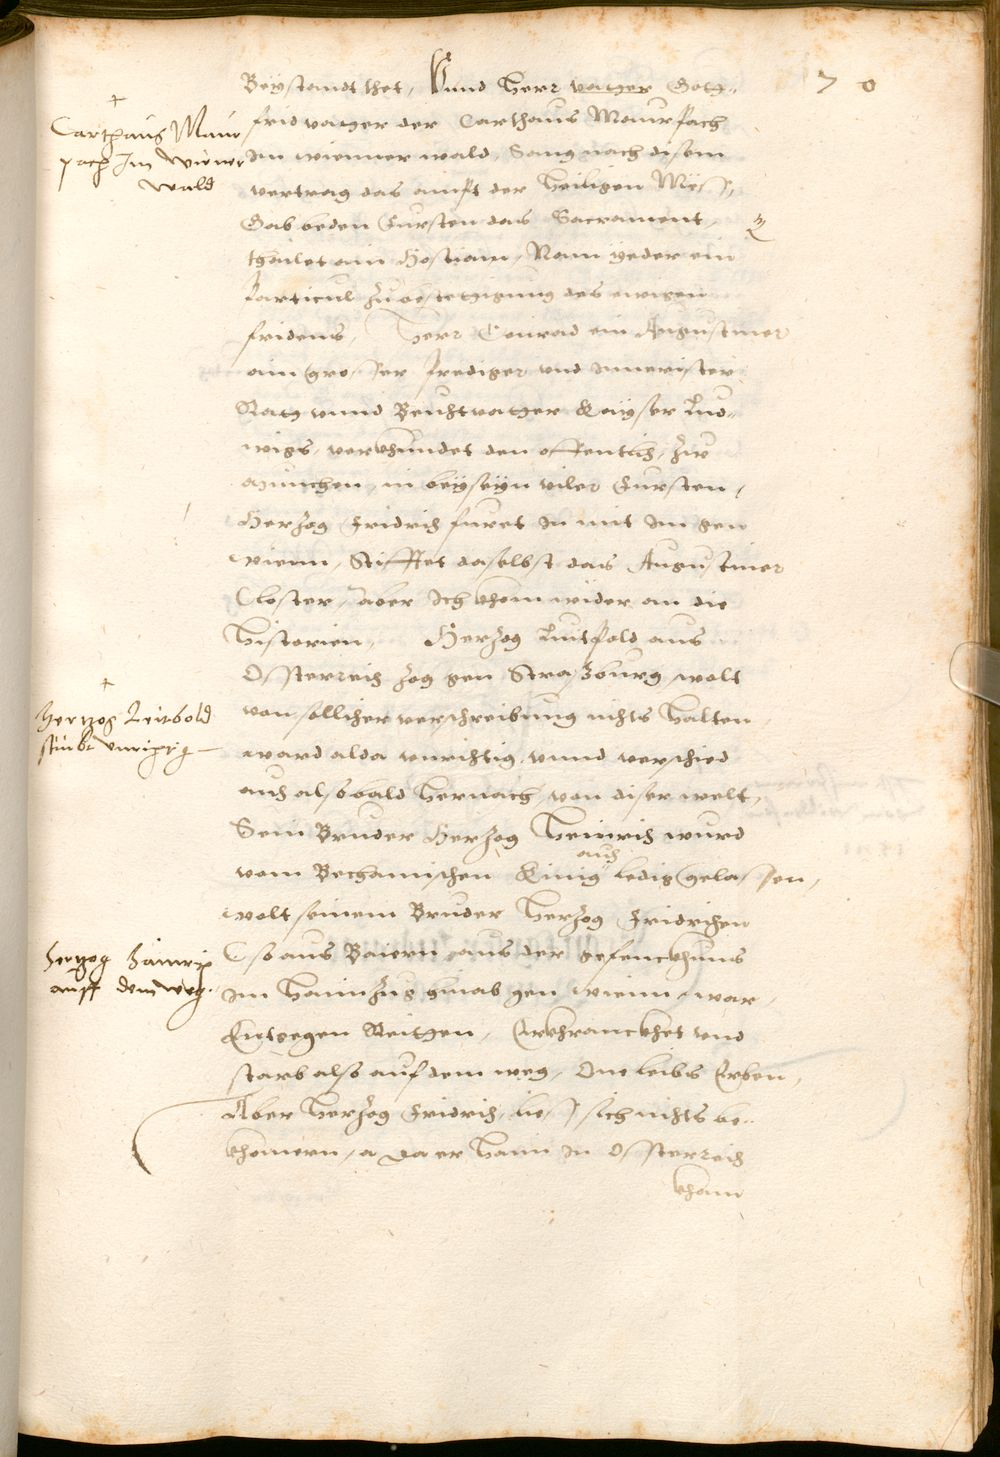 70
Beystandt thet, Vnnd herr vatter Gott¬
frid vatter der Carthaus Maurpach
im wienner wald, Sang nach disem
vertrag das ampt der heiligen Mess,
Gab beden Fursten das Sacrament,
thailet ain Hostiam, Nam yeder ein
particul zu bestettigung des ewigen
fridens, Herr Conrad ein Augustiner
ain grosser prediger vnd innerister
Rath vnnd Beichtvatter Kayser Lud¬
wigs, verkhundet den offentlich, zw
Munchen, in beyseyn viler Fursten,
Herzog Fridrich furet in mit im gen
wienn, Stifftet daselbst das Augustiner
Closter, aber ich khom wider an die
Historien, Herzog Luitpold aus
Ossterreich zog gen Straßburg, wolt
von sollicher verschreibung nichts halten,
ward alda vnrichtig, vnnd verschied
auch alsbald hernach, von diser welt,
Sein Bruder Herzog Heinrich wurd
auch
vom Behamischen Kinig ledig gelassen,
wolt seinem Bruder Herzog Fridrichen
so aus Baiern aus der gefenckhnus
im hainzug gen wienn war,
Entgegen Reitten, Erkhranckhet vnd
starb also auf dem weg, One leibs Erben,
Aber Herzog Fridrich, liess sich nichts be¬
khomern, da er haim in Ossterreich
kham
Carthaus Maur
pach Im Wiener
Wald
Hertzog Leupold
stirbt vnrichtig
Hertzog Hainrich
auff dem weg.